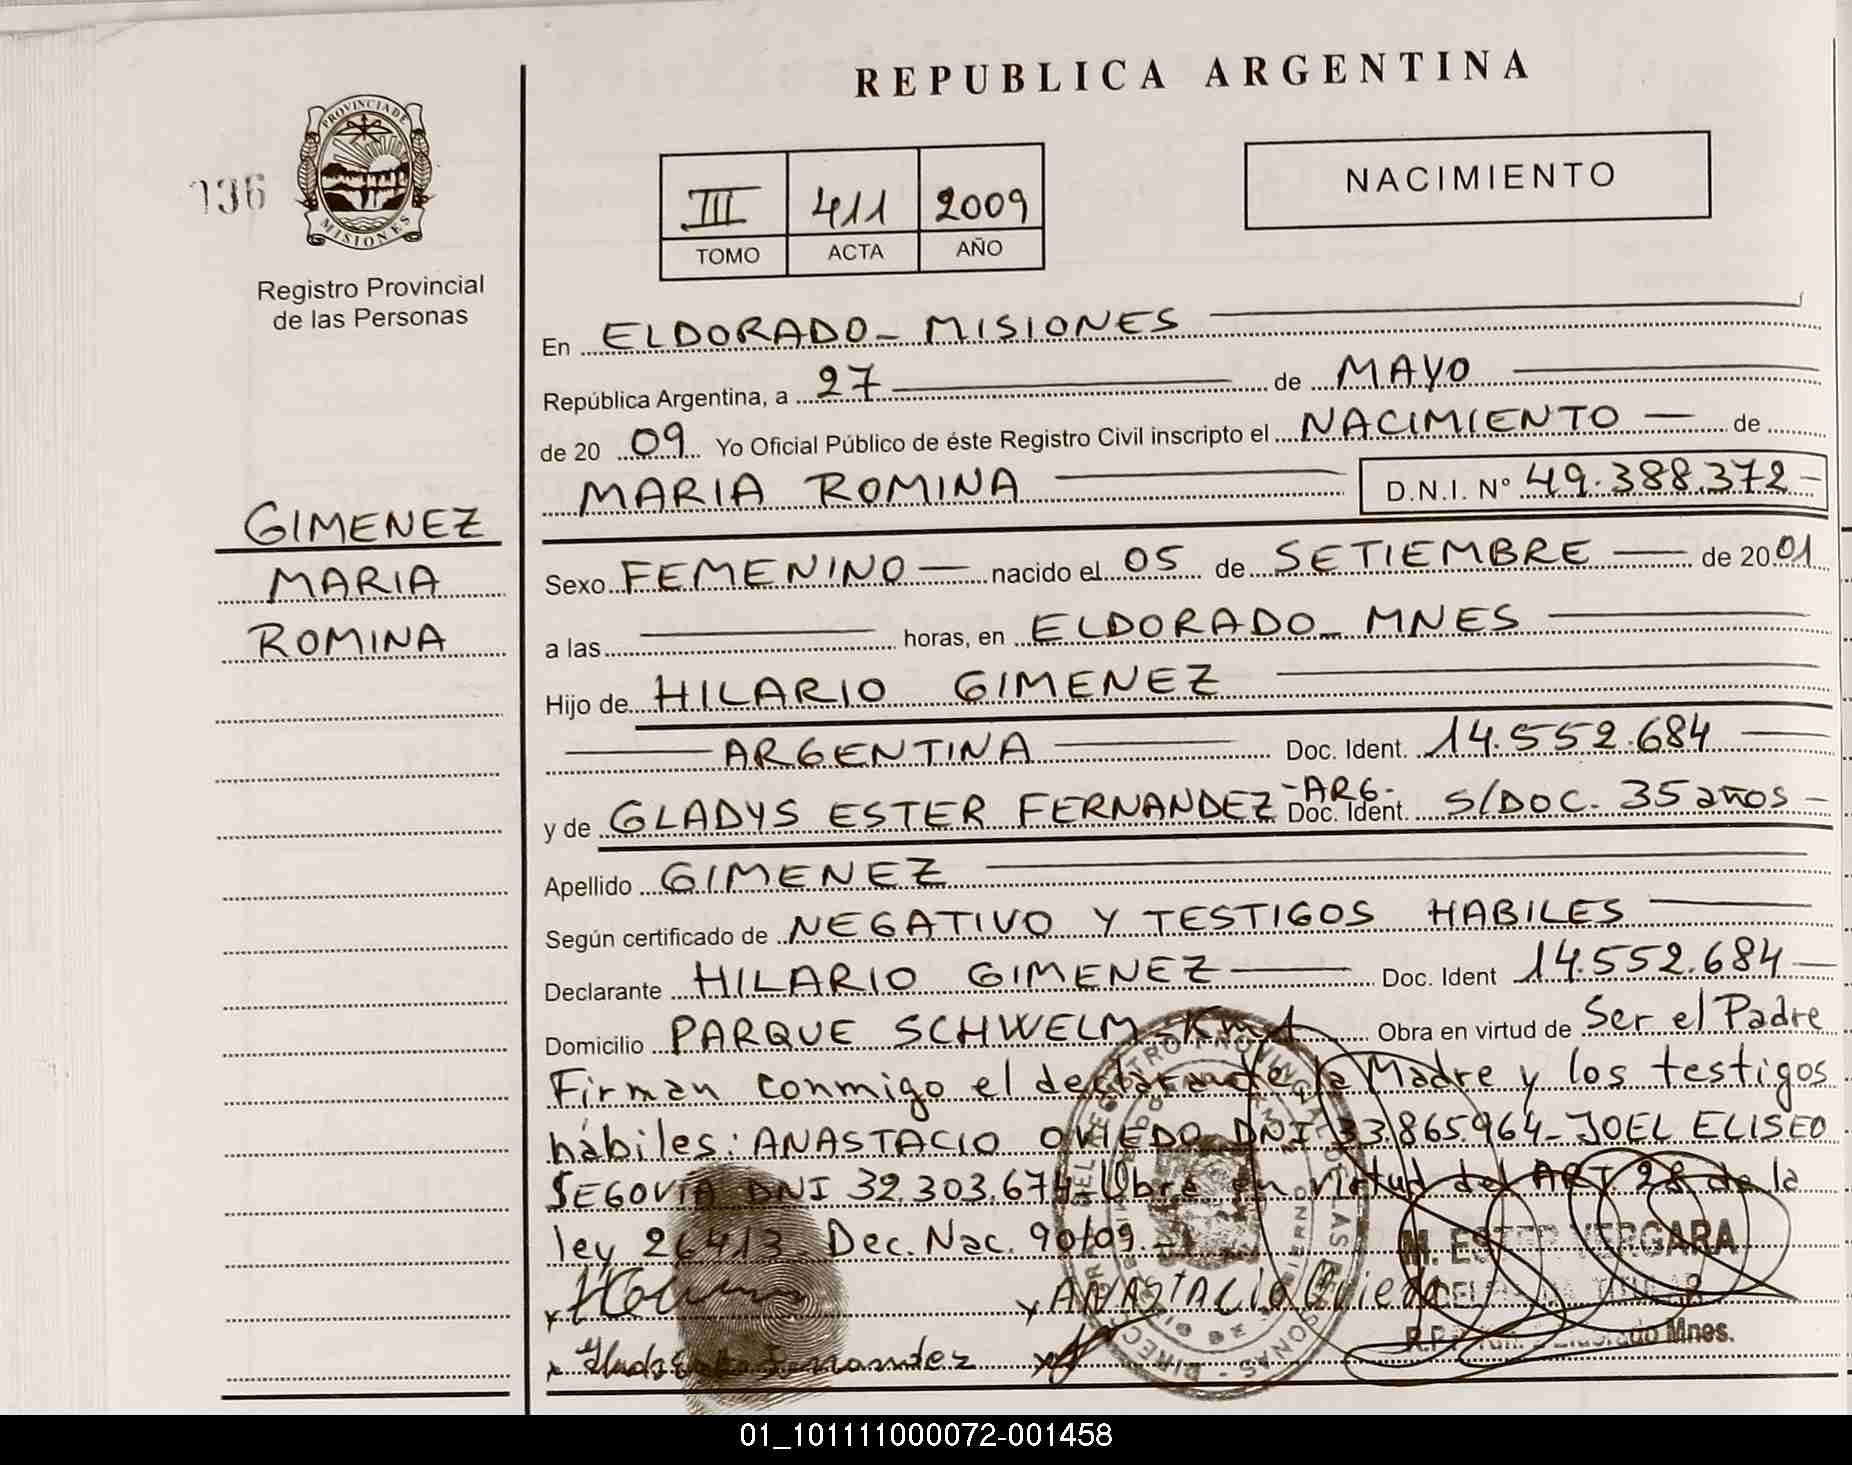 REPUBLICA ARGENTINA
PROVINCIA DE
MISIONES
136
Registro Provincial
de las Personas
III 411 2009
TOMO ACTA AÑO
NACIMIENTO
En ELDORADO - MISIONES
República Argentina, a 27 de MAYO
de 20 09 Yo Oficial Público de éste Registro Civil inscripto el NACIMIENTO de
MARIA ROMINA D.N.I. Nº 49.388.372
GIMENEZ
MARIA
ROMINA
Sexo FEMENINO nacido el 05 de SETIEMBRE de 2001
a las horas, en ELDORADO - MNES
Hijo de HILARIO GIMENEZ
ARGENTINA Doc. Ident. 14.552.684
y de GLADYS ESTER FERNANDEZ -ARG- Doc. Ident. S/DOC. 35 años
Apellido GIMENEZ
Según certificado de NEGATIVO Y TESTIGOS HABILES
Declarante HILARIO GIMENEZ Doc. Ident 14.552.684
Domicilio PARQUE SCHWELM - Km 1 Obra en virtud de Ser el Padre
Firman conmigo el declarante la Madre y los testigos
hábiles: ANASTACIO OVIEDO DNI 33.865.964 - JOEL ELISEO
SEGOVIA DNI 32.303.674 - Obra en virtud del ART 28 de la
ley 26413 Dec. Nac. 90/09.-
x x ANASTACIO Oviedo
x Fernandez x
M. ESTER VERGARA
TITULAR
Eldorado Mnes.
01_101111000072-001458